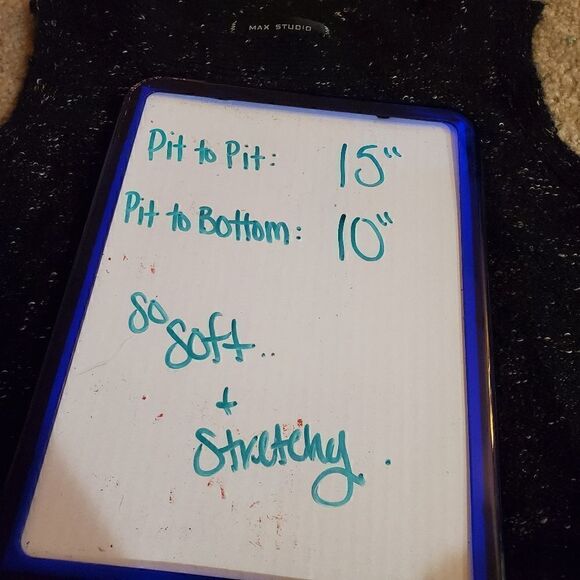 MAX STUDIO
Pit to Pit: 15"
Pit to Bottom: 10"
So
Soft..
+
Stretchy.